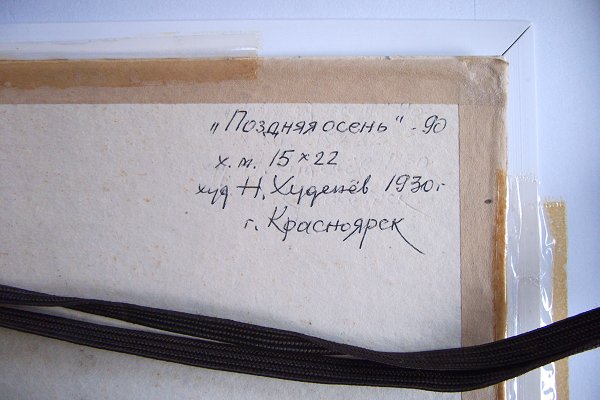 „Поздняя осень" - 90
х.м. 15×22
худ Н. Худенёв 1930г
г. Красноярск